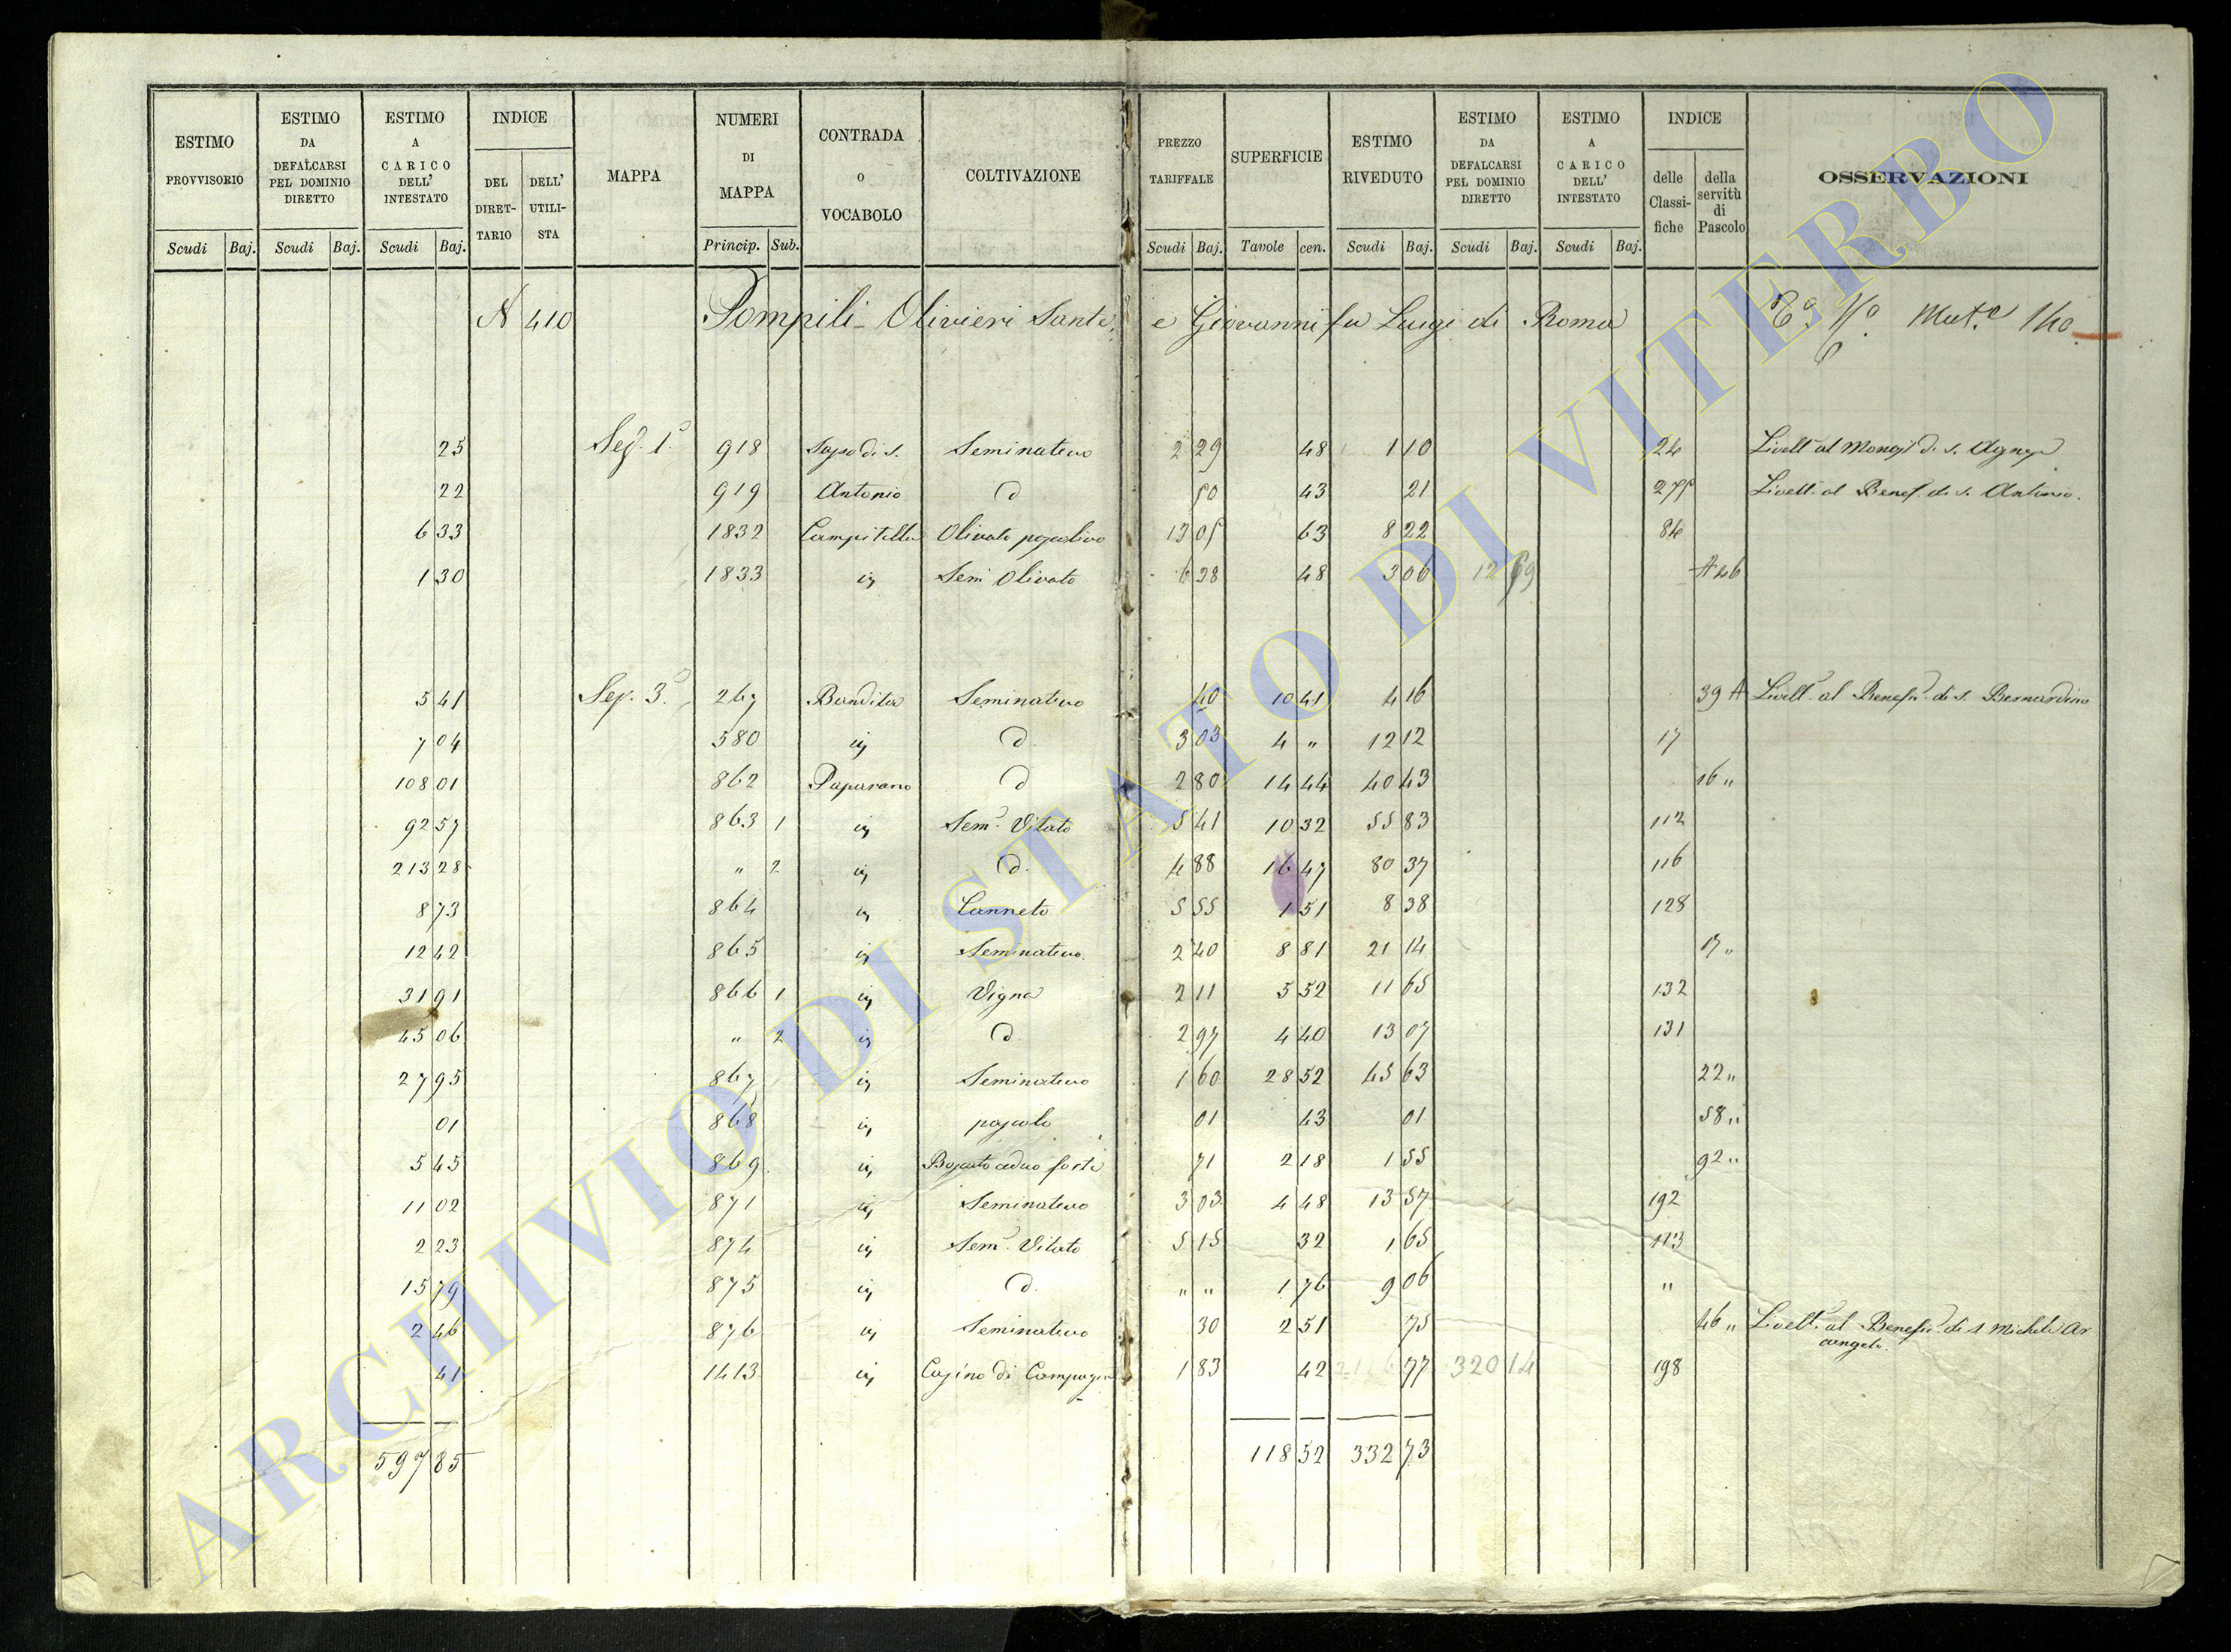 ESTIMO PROVVISORIO Scudi Baj.
ESTIMO DA DEFALCARSI PEL DOMINIO DIRETTO Scudi Baj.
ESTIMO A CARICO DELL' INTESTATO Scudi Baj.
INDICE DEL DIRET-TARIO DELL' UTILI-STA
MAPPA
NUMERI DI MAPPA Princip. Sub.
CONTRADA O VOCABOLO
COLTIVAZIONE
PREZZO TARIFFALE Scudi Baj.
SUPERFICIE Tavole cen.
ESTIMO RIVEDUTO Scudi Baj.
ESTIMO DA DEFALCARSI PEL DOMINIO DIRETTO Scudi Baj.
ESTIMO A CARICO DELL' INTESTATO Scudi Baj.
INDICE delle Classi-fiche della servitù di Pascolo
OSSERVAZIONI
N 410 Pompili-Olivieri Sante, e Giovanni fu Luigi di Roma
25 Sez. 1ª 918 Seminativo 2 29 48 1 10 24
22 919 Antonio d 50 43 21 Livell. al Benef. di S. Antonio.
6 33 1832 Campitella Olivato pascolivo 13 05 63 8 22 84
1 30 1833 iÿ Sem Olivato 6 38 48 3 06 12 69 A 46
5 41 Sez. 3ª 267 Bandita Seminativo 40 10 41 4 16 39 A Livell. al Benefiº di S. Bernardino
7 04 580 iÿ d. 3 03 4 " 12 12 17
108 01 862 Paparano d 2 80 14 44 40 43 16 "
92 57 863 1 iÿ Sem. Vitato 5 41 10 32 55 83 112
213 28 " 2 iÿ d. 4 88 16 47 80 37 116
8 73 864 iÿ Canneto 5 55 1 51 8 38 128
12 42 865 iÿ Seminativo. 2 40 8 81 21 14 17 "
31 91 866 1 iÿ Vigna 2 11 5 52 11 65 132
45 06 " 2 iÿ d. 2 97 4 40 13 07 131
27 95 867 iÿ Seminativo 1 60 28 52 45 63 22 "
01 868 iÿ pascolo 01 43 01 58 "
5 45 869 iÿ Boscato ceduo forte 71 2 18 1 55 92 "
11 02 871 iÿ Seminativo 3 03 4 48 13 57 192
2 23 874 iÿ Sem. Vitato 5 15 32 1 65 113
15 79 875 iÿ d. " " 1 76 9 06 "
2 46 876 iÿ Seminativo 30 2 51 75 46 " Livell. al Benefiº di S Michele Ar
cangelo.
41 1413 iÿ Casino di Campagna 1 83 42 77 320 14 198
597 85 118 52 332 73
ARCHIVIO DI STATO DI VITERBO